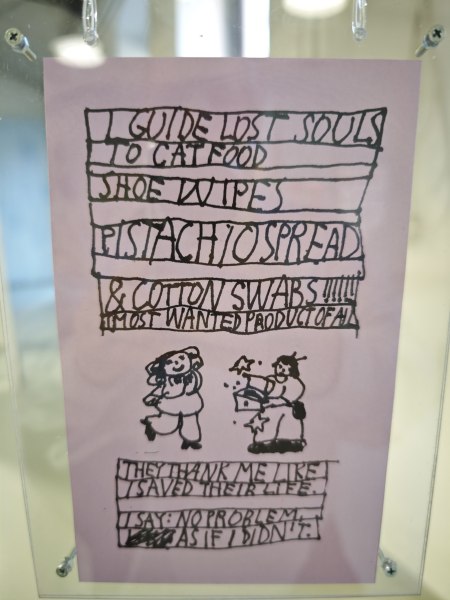 I GUIDE LOST SOULS
TO CAT FOOD
SHOE WIPES
PISTACHIO SPREAD
& COTTON SWABS !!!!!!
MOST WANTED PRODUCT OF ALL
THEY THANK ME LIKE
I SAVED THEIR LIFE.
I SAY: NO PROBLEM,
AS IF I DIDN'T.